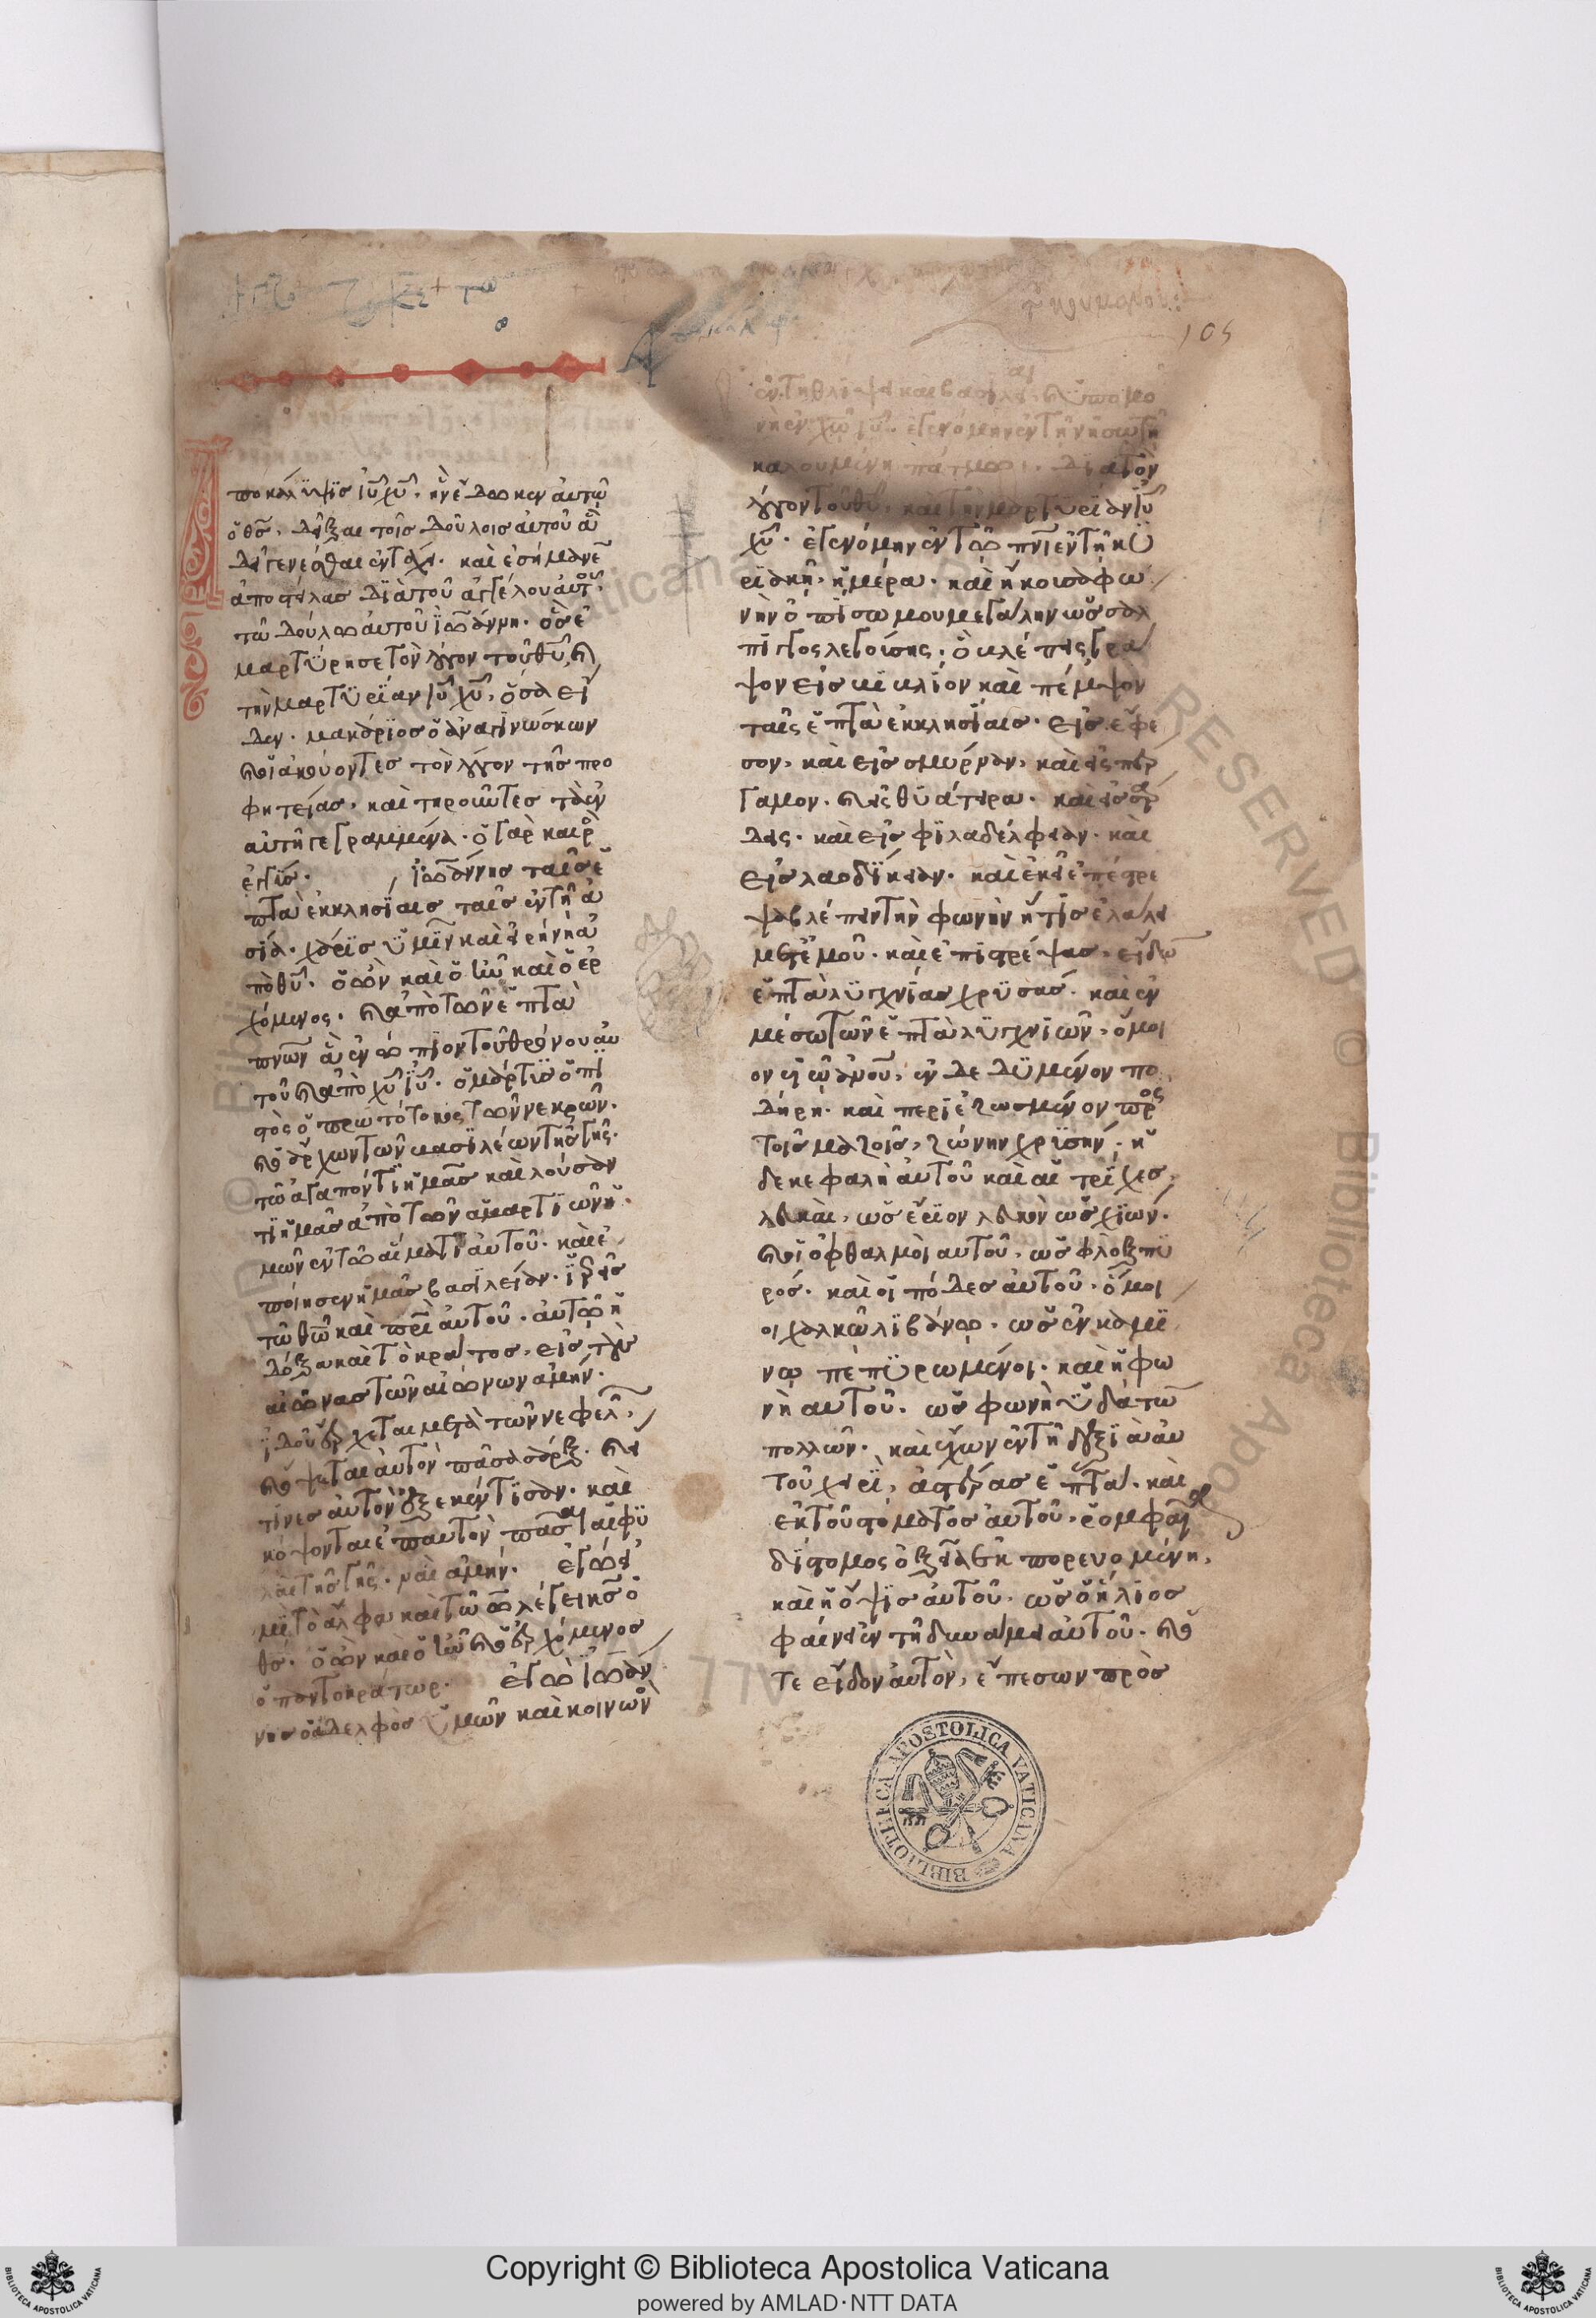 ποκάλυψϊσ ἰῡ χῡ· ἣν ἔδωκεν ἀυτῶ
ὁ θσ̄, δεῖξαι τοῖσ δούλοισ ἀυτοῦ ἃ
δεῖ γενέσθαι ἐν τάχει· καὶ ἐσήμανε̄
ἀποστείλασ δϊὰ τοῦ ἀγγέλου ἀυτοῦ,
τῶ δούλω ἀυτοῦ ϊωάννη· ὃσ ἐ
μαρτϋρησε τὸν λόγον τοῦ θῡ, καὶ
τὴν μαρτϋρϊαν ἰῡ χῡ, ὅσα εἶ
δεν· μακάρϊοσ ὁ ἀναγϊνώσκων
καὶ οἱ ἀκούοντεσ τὸν λόγον τῆσ προ
φητείασ, καὶ τηροῦντεσ τὰ ἐν
αὐτῆ γεγραμμένα· ὁ γὰρ καιρ
ἐγγϊσ· ϊωάννησ ταῖσ ἑ
πτὰ ἐκκλησϊαισ ταῖσ ἐν τῆ ἀ
σϊα· χάρϊσ ϋμῖν καὶ εἰρήνη ἀ
πὸ θῡ· ὁ ὢν καὶ ὁ ἦν καὶ ὁ ἐρ
χόμενος· καὶ ἀπὸ τῶν ἑπτὰ
πνω̄ν ἃ ἐνώπϊον τοῦ θρόνου ἀυ
τοῦ καὶ ἀπὸ χῡ ἰῡ· ὁ μάρτϊσ ὁ πϊ
στὸς ὁ πρωτότοκος τῶν νεκρῶν·
καὶ ὁ ἄρχων τῶν βασϊλέων τῆσ γῆς·
τῶ ἀγαπόντϊ ἡμᾶσ καὶ λούσαν
τϊ ἡμᾶσ ἀπὸ τῶν ἁμαρτϊῶν ἡ
μῶν ἐν τῶ αἵματϊ ἀυτοῦ· καὶ ἐ
ποίησεν ἡμᾶσ βασϊλείαν· ϊερεῖσ
τῶ θω̄ καὶ πρϊ̄ ἀυτοῦ· ἀυτῶ ἡ
δόξα καὶ τὸ κράτοσ, εἰσ τοὺσ
αἰῶνασ τῶν αἰώνων ἀμήν·
ϊδοὺ ἔρχεται μετὰ τῶν νεφελῶ,
καὶ ὄψεται ἀυτὸν πᾶσα σάρξ· καὶ οἵ
τϊνεσ ἀυτὸν ἐξεκέντϊσαν· καὶ
κόψονται ἐπ αυτὸν πᾶσαι αἱ φϋ
λαὶ τῆσ γῆς· ναὶ ἀμήν· ἐγώ εἰ
μϊ τὸ ἄλφα καὶ τῶ ω λέγει κσ̄ ὁ
θσ̄· ὁ ὢν καὶ ὁ ἦν καὶ ὁ ἐρχόμενοσ
ὁ παντοκράτωρ· ἐγὼ ϊωάν
νησ ὁ ἀδελφὸσ ϋμῶν καὶ κοινων
ἐν τῆ θλίψει καὶ βασϊλεία, καὶ ϋπομο
νῆ ἐν χω̄ ἰῡ· ἐγενόμην ἐν τῆ νήσω τῆ
καλουμένη πάτμω, δϊὰ τὸν
λόγον τοῦ θῡ, καὶ τὴν μαρτϋρϊαν ἰῡ
χῡ· ἐγενόμην ἐν τῶ πνϊ̄ ἐν τῆ κϋ
ρϊακῆ ἡμέρα· καὶ ἤκουσα φω
νὴν ὀπϊσω μου μεγάλην ὡσ σάλ
πϊγγος λεγούσης· ὃ βλέπεις γρά
ψον εἰσ βϊβλϊον καὶ πέμψον
ταῖς ἑπτὰ ἐκκλησϊαισ· εἰσ ἔφε
σον, καὶ εἰσ σμύρναν, καὶ εἰς πέρ
γαμον· καὶ εἰς θϋάτειρα· καὶ εἰσ σάρ
δεις· καὶ εἰσ φϊλαδέλφειαν· καὶ
εἰσ λαοδϊκειαν· καὶ ἐκεῖ ἐπέστρε
ψα βλέπειν τὴν φωνὴν ἥτϊσ ἐλάλει
μετ ἐμοῦ· καὶ ἐπϊστρέψασ, εἶδω̄
ἑπτὰ λϋχνϊασ χρϋσᾶσ· καὶ ἐν
μέσω τῶν ἑπτὰ λϋχνϊῶν, ὅμοι
ον υἱῶ ἀνο̄υ, ἐνδεδϋμένον πο
δήρη· καὶ περϊεζωσμένον πρὸς
τοῖσ μαζοῖσ, ζώνην χρϋσήν· ἡ
δε κεφαλὴ ἀυτοῦ καὶ αἱ τρϊχεσ
λευκαὶ, ὡσ ἔρϊον λευκὸν ὡσ χϊών·
καὶ οἱ ὀφθαλμοὶ αυτοῦ, ὡσ φλὸξ πϋ
ρόσ· καὶ οἱ πόδεσ ἀυτοῦ, ὅμοι
οι χαλκωλϊβάνω· ὡσ ἐν καμϊ
νω πεπϋρωμένοι· καὶ ἡ φω
νὴ αυτοῦ· ὡσ φωνὴ ϋδάτω̄
πολλῶν· καὶ ἔχων ἐν τῆ δεξϊᾶ ἀυ
τοῦ χειρϊ, ἀστέρασ ἑπτά· καὶ
ἐκ τοῦ στόματοσ ἀυτοῦ, ῥομφαία
δϊστομος ὀξεῖα ἐκπορευομένη,
καὶ ἡ ὄψϊσ ἀυτοῦ, ὡσ ὁ ἥλϊοσ
φαίνει ἐν τῆ δυνάμει ἀυτοῦ· καὶ ὅ
τε εἶδον ἀυτὸν, ἔπεσων πρὸσ
105
BIBLIOTECA APOSTOLICA VATICANA
Copyright © Biblioteca Apostolica Vaticana
powered by AMLAD·NTT DATA